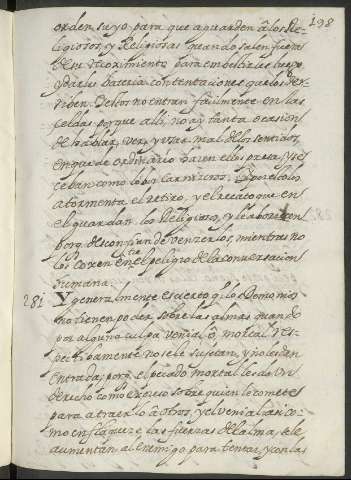 198
orden suyo para que aguarden â los Re-
ligiosos, y Religiosas quando salen fuera
de su recogimiento para embestirles luego
y darles bateria con tentaciones que los der-
riben. Destos no entran facilmente en las
celdas porque alli no ay tanta ocasion
de hablar, ver, y usar mal de los sentidos,
en que de ordinario hacen ellos presa, y se
ceban como lobos carniceros. Y por esto los
atormenta el retiro, y el recato que en
el guardan los Religiosos, y le aborrecen
porq desconfian de vencerlos, mientras no
los cogen en el peligro de la conversacion
humana.
281 Y generalmente es cierto q los Demonios
no tienen poder sobre las almas quando
por alguna culpa venial, ô mortal res-
pectivamente no se le sujetan, y no le dan
entrada; porq el pecado mortal les da un
derecho como expreso sobre quien lo comete
para atraerlo â otros, y el venial asi co-
mo enflaquece las fuerzas del alma, se le
aumentan al enemigo para tentar, y con las